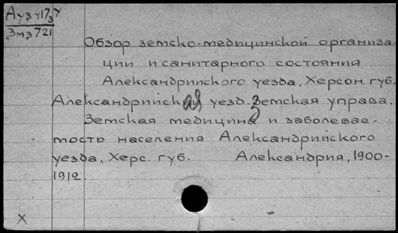 Ау 3417
Зм3 721
Обзор земско-медицинской организа-
ции и санитарного состояния
Александрийского уезда, Херсон. губ.
Александрийская уезд. Земская управа.
Земская медицина и заболевае-
мость населения Александрийского
уезда, Херс. губ. Александрия, 1900-
1912.
X